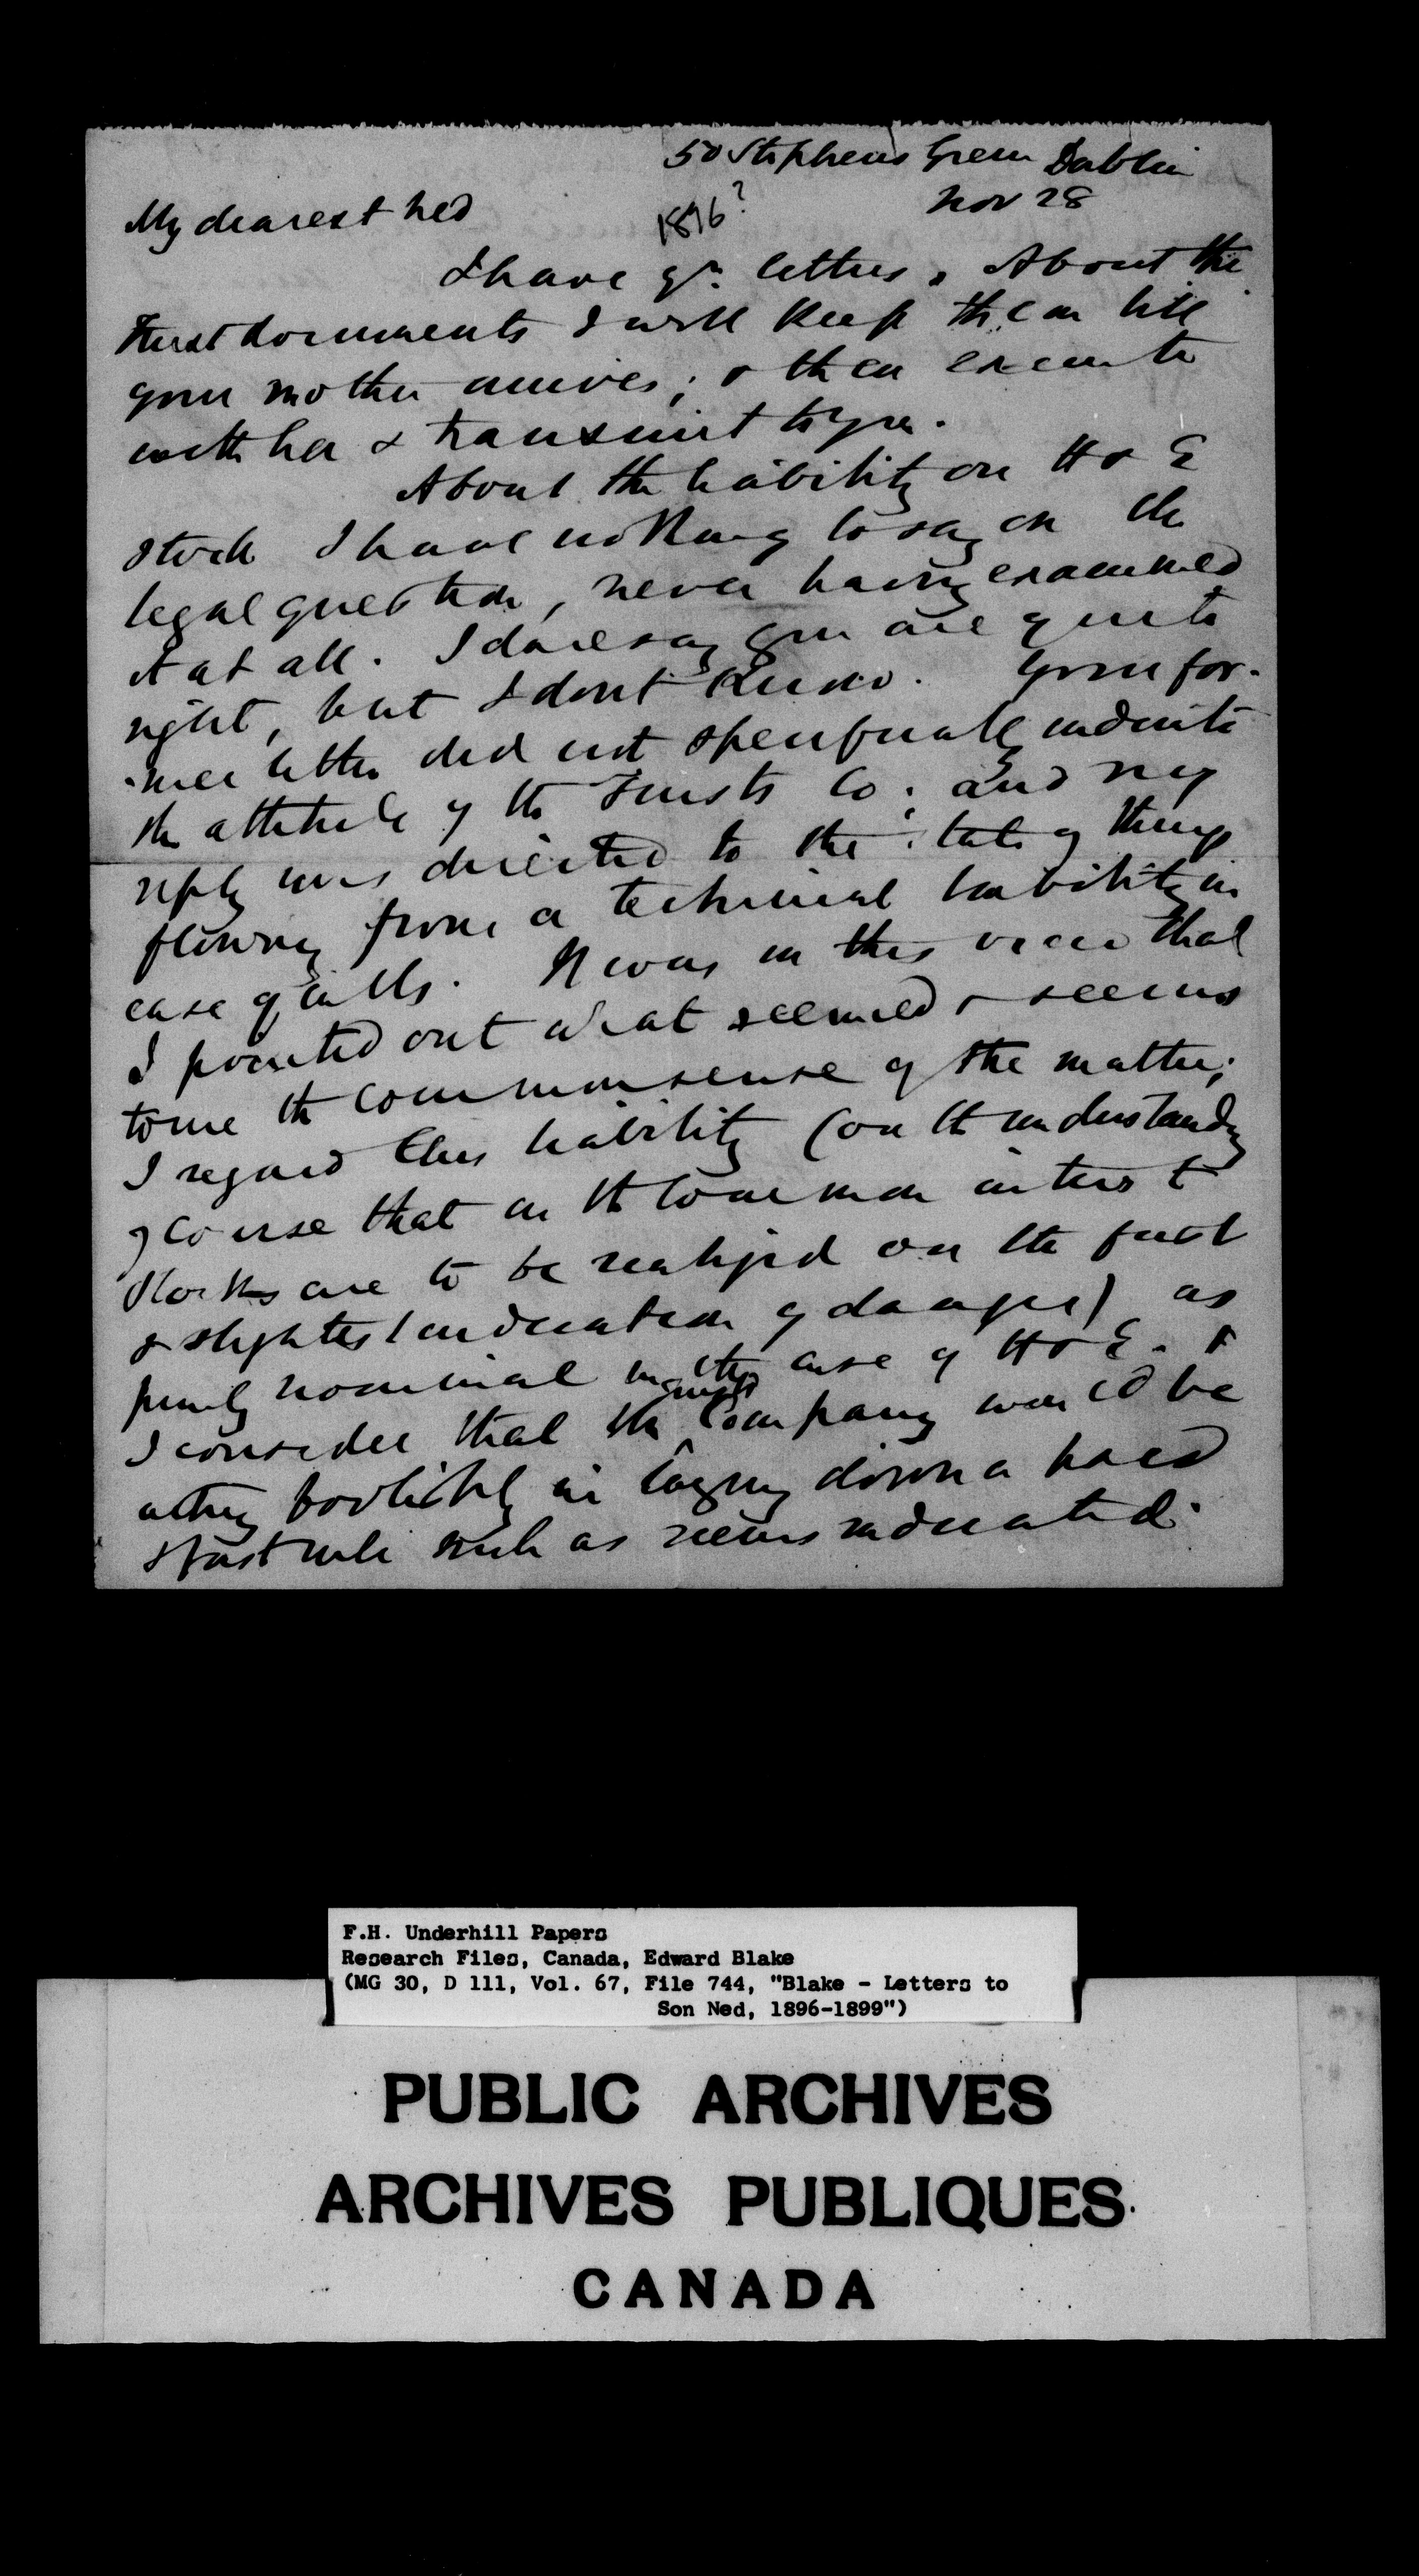 50 Stephens Green Dublin
Nov 28
1896?
My dearest Ned
I have yr. letters. About the
Trust documents I will keep them till
your mother arrives; & then execute
with her & transmit to you.
About the liability on H & E
stock I have nothing to say on the
legal question, never having examined
it at all. I daresay you are quite
right, but I dont know. Your for-
-mer letter did not specifically indicate
the attitude of the Trusts Co; and my
reply was directed to the state of things
flowing from a technical liability in
case of calls. It was in this view that
I pointed out what seemed & seems
to me the common sense of the matter;
I regard this liability (on the understandg
of course that in the common interest
stocks are to be realized on the first
& slightest indication of danger) as
purely nominal in the case of H & E. &
I consider that the Trusts Company would be
acting foolishly in laying down a hard
& fast rule such as seems indicated.
F.H. Underhill Papers
Research Files, Canada, Edward Blake
(MG 30, D 111, Vol. 67, File 744, "Blake - Letters to
Son Ned, 1896-1899")
PUBLIC ARCHIVES
ARCHIVES PUBLIQUES
CANADA